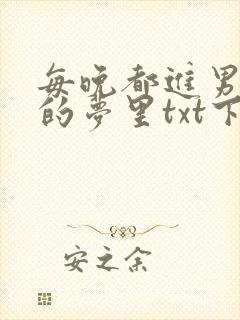 每晚都进男
的梦里txt下
安之余